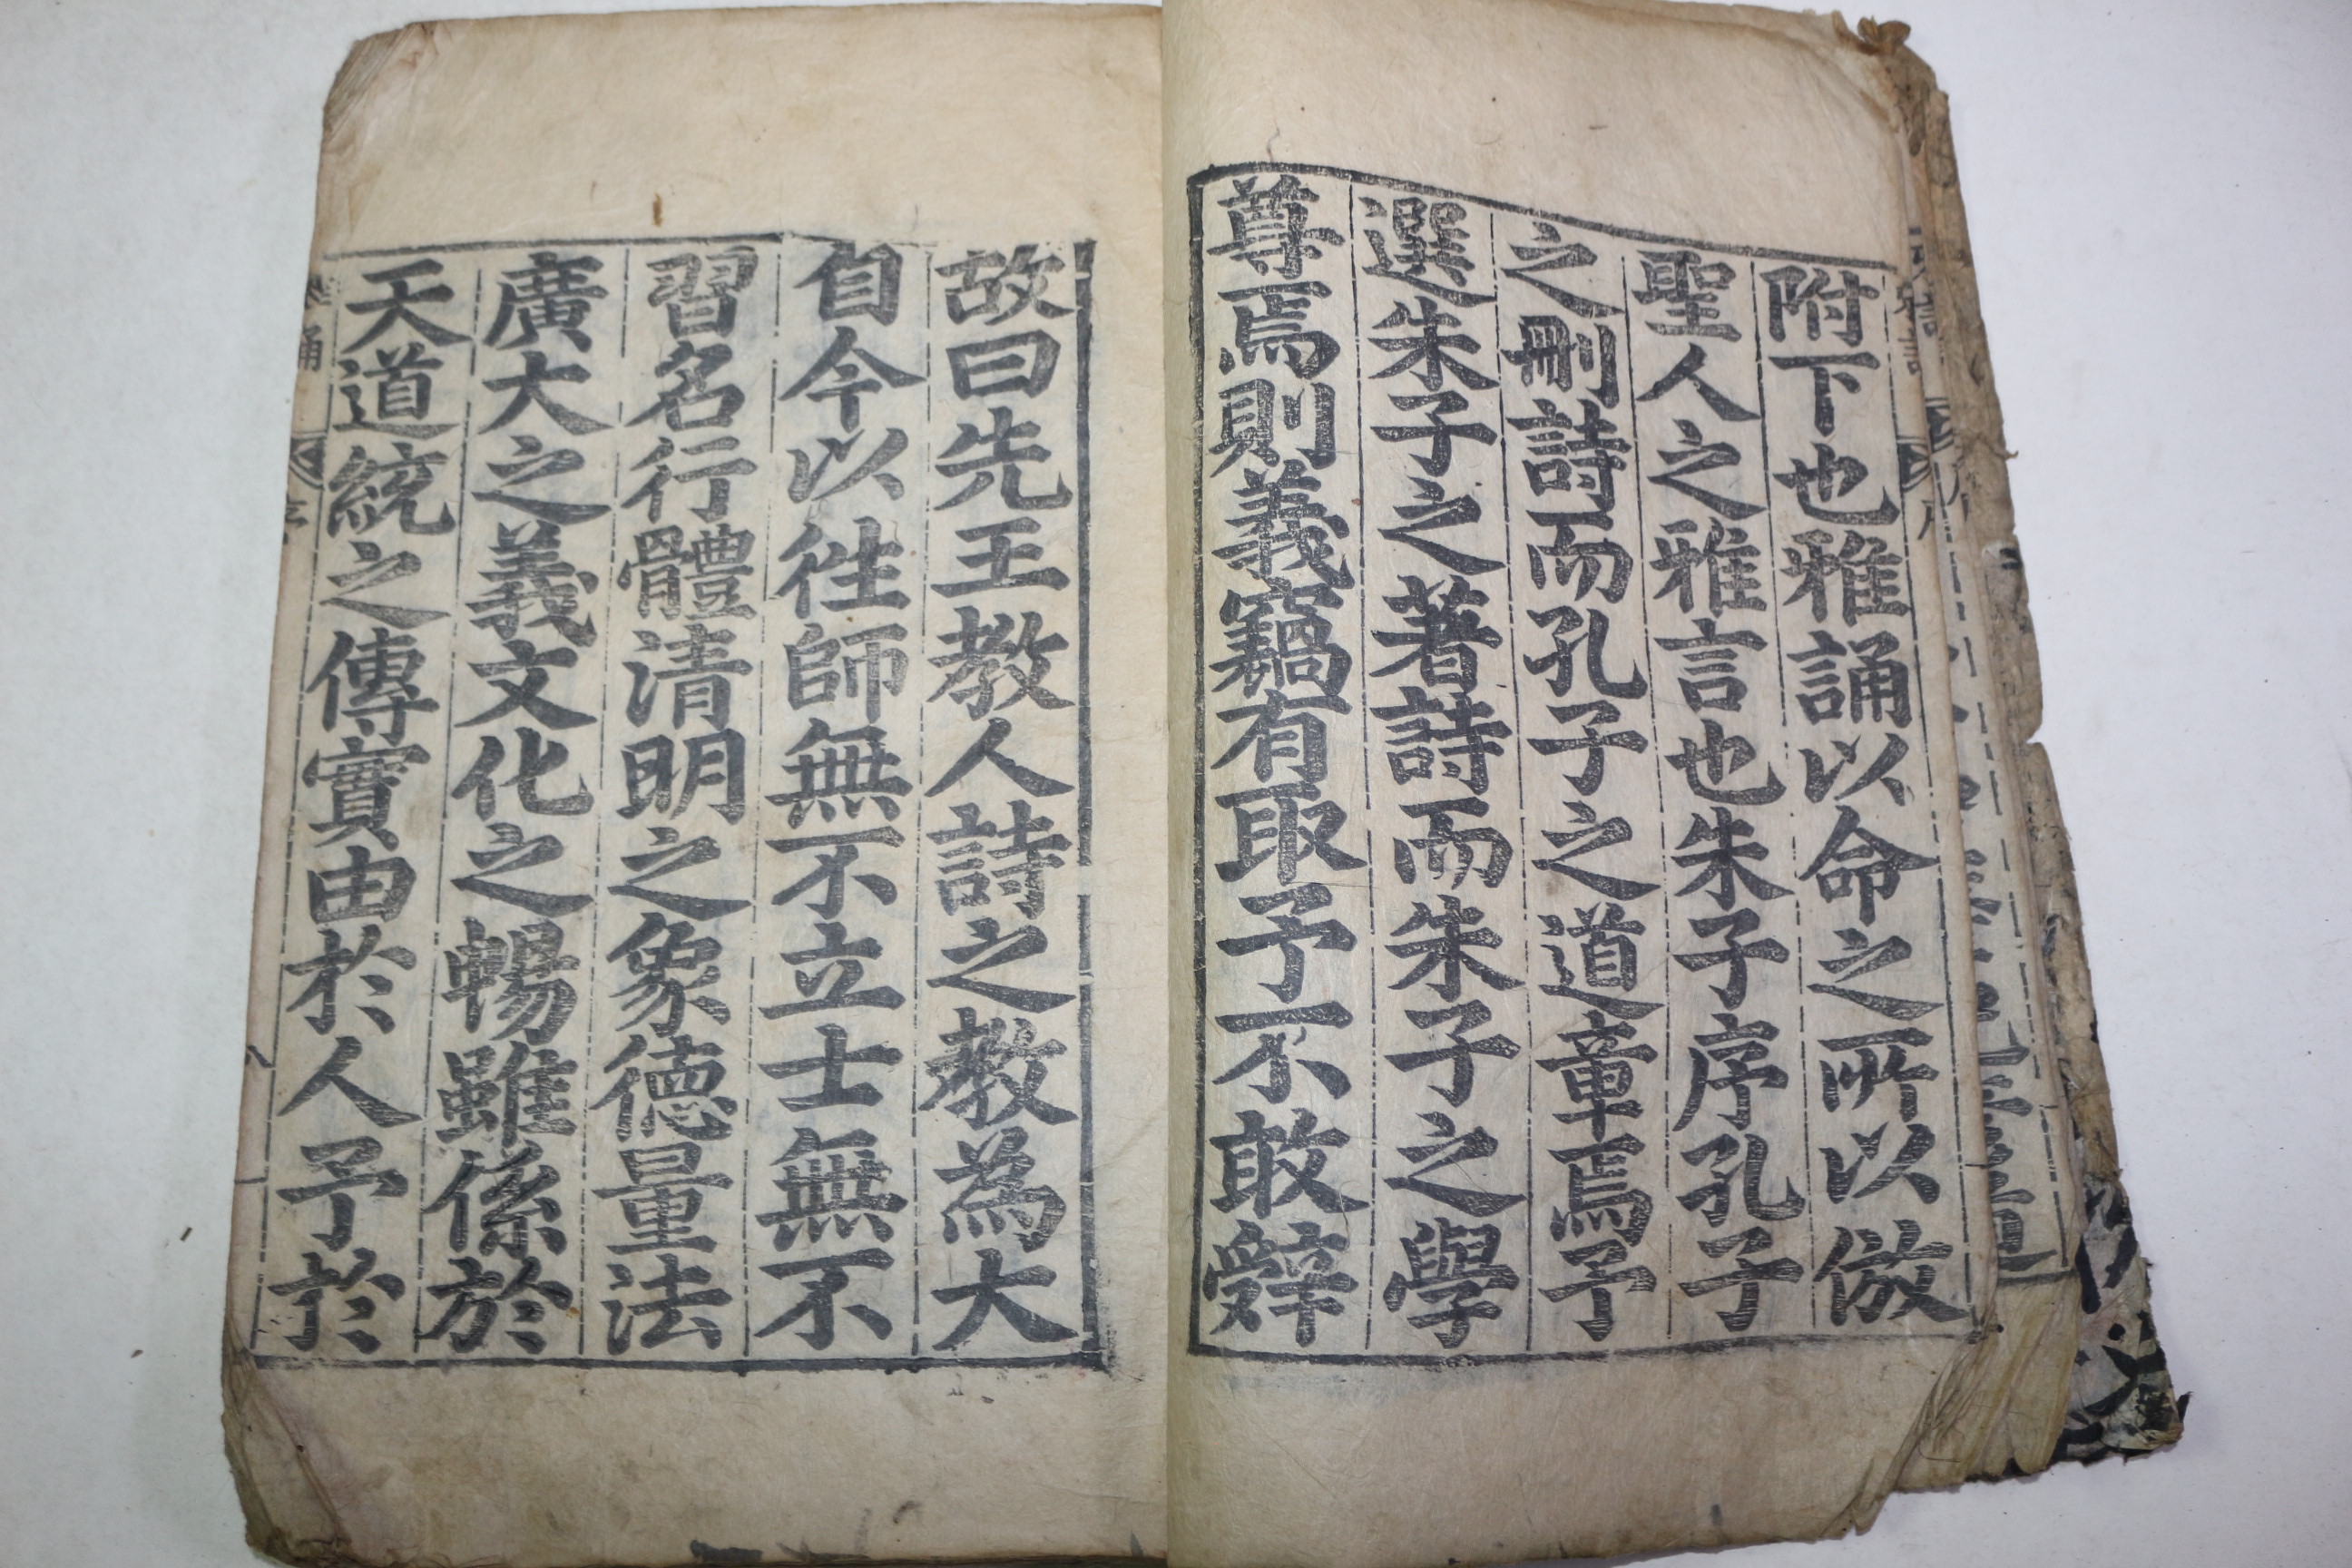 附下也雅誦以命之所以倣
聖人之雅言也朱子序孔子
之刪詩而孔子之道章焉予
選朱子之著詩而朱子之學
尊焉則義竊有取予不敢辤
故曰先王教人詩之教為大
自今以徃師無不立士無不
習名行體清明之象德量法
廣大之義文化之暢雖係於
天道統之傳實由於人予於